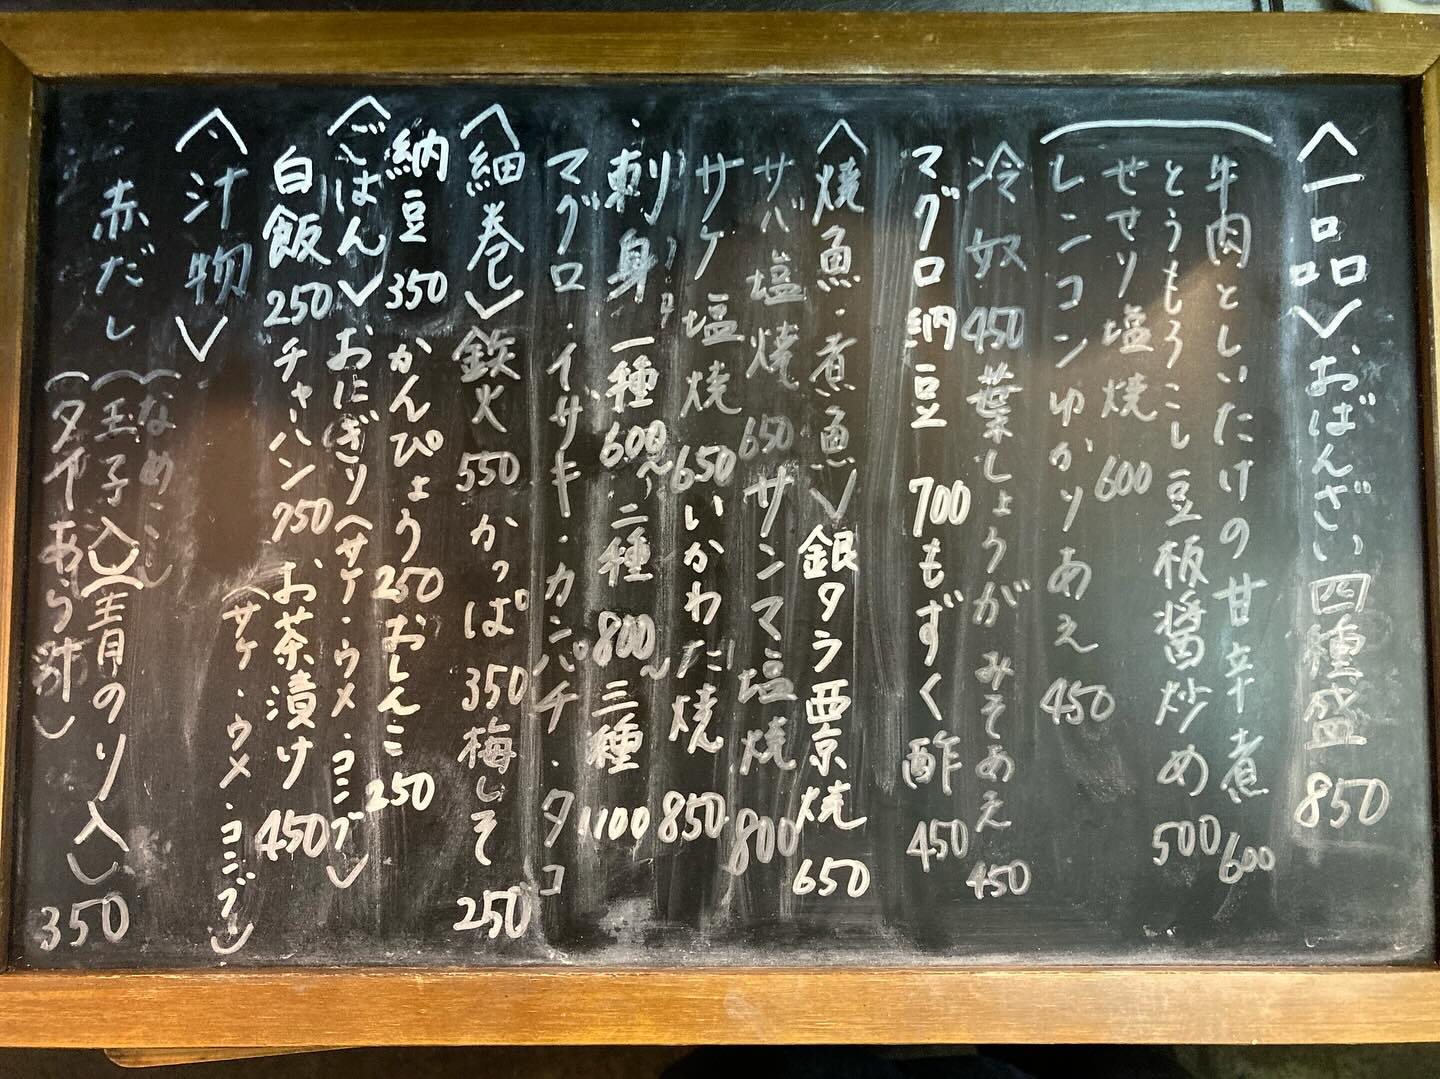 〈一品〉おばんざい四種盛 850
牛肉としいたけの甘辛煮 600
とうもろこし豆板醤炒め 500
せせり塩焼 600
レンコンゆかりあえ 450
冷奴 450 葉しょうがみそあえ 450
マグロ納豆 700 もずく酢 450
〈焼魚・煮魚〉銀タラ西京焼 650
サバ塩焼 650 サンマ塩焼 800
サケ塩焼 650 いかわた焼 850
刺身 一種 600〜 二種 800〜 三種 1100
マグロ・イサキ・カンパチ・タコ
〈細巻〉鉄火 550 かっぱ 350 梅しそ 250
納豆 350 かんぴょう 250 おしんこ 250
〈ごはん〉おにぎり(サケ・ウメ・コンブ)
白飯 250 チャーハン 750 お茶漬け 450
(サケ・ウメ・コンブ)
〈汁物〉
赤だし
(なめこ)
(玉子入)(青のり入)
(タイあら汁) 350